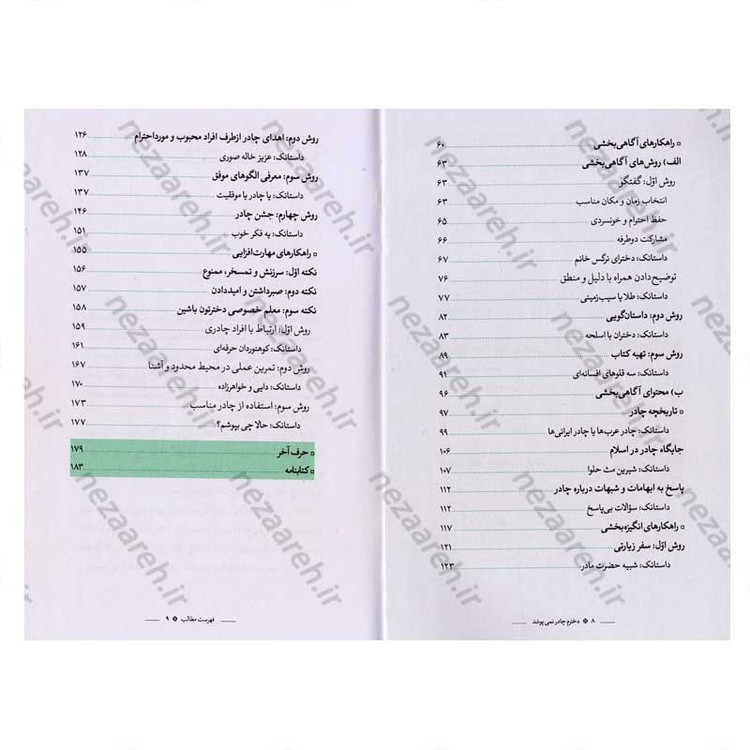 ▫ راهکارهای آگاهی‌بخشی ۶۰
الف) روش‌های آگاهی‌بخشی ۶۳
روش اوّل: گفتگو ۶۳
انتخاب زمان و مکان مناسب ۶۳
حفظ احترام و خونسردی ۶۵
مشارکت دوطرفه ۶۶
داستانک: دخترای نرگس خانم ۶۷
توضیح‌دادن همراه با دلیل و منطق ۷۶
داستانک: طلا یا سیب‌زمینی ۷۷
روش دوم: داستان‌گویی ۸۲
داستانک: دختران با اسلحه ۸۳
روش سوم: تهیه کتاب ۸۹
داستانک: سه قلوهای افسانه‌ای ۹۱
ب) محتوای آگاهی‌بخشی ۹۷
▫ تاریخچه چادر ۹۷
داستانک: چادر عرب‌ها یا چادر ایرانی‌ها ۹۹
جایگاه چادر در اسلام ۱۰۶
داستانک: شیرین مث حلوا ۱۰۷
پاسخ به ابهامات و شبهات درباره چادر ۱۱۲
داستانک: سؤالات بی‌پاسخ ۱۱۲
▫ راهکارهای انگیزه‌بخشی ۱۱۷
روش اوّل: سفر زیارتی ۱۲۱
داستانک: شبیه حضرت مادر ۱۲۳
۸ دخترم چادر نمی‌پوشد
روش دوم: اهدای چادر ازطرف افراد محبوب و مورداحترام ۱۲۶
داستانک: عزیز خاله صوری ۱۲۸
روش سوم: معرفی الگوهای موفق ۱۳۷
داستانک: با چادر یا موفقیت ۱۳۷
روش چهارم: جشن چادر ۱۴۶
داستانک: یه فکر خوب ۱۵۱
▫ راهکارهای مهارت‌افزایی ۱۵۵
نکته اوّل: سرزنش و تمسخر، ممنوع ۱۵۶
نکته دوم: صبرداشتن و امیددادن ۱۵۷
نکته سوم: معلم خصوصی دخترتون باشین ۱۵۸
روش اوّل: ارتباط با افراد چادری ۱۵۹
داستانک: کوهنوردان حرفه‌ای ۱۶۱
روش دوم: تمرین عملی در محیط محدود و آشنا ۱۶۷
داستانک: دایی و خواهرزاده ۱۷۰
روش سوم: استفاده از چادر مناسب ۱۷۳
داستانک: حالا چی بپوشم؟ ۱۷۷
▫ حرف آخر ۱۷۹
▫ کتابنامه ۱۸۳
فهرست مطالب ۹
nezaareh.ir
nezaareh.ir
nezaareh.ir
nezaareh.ir
nezaareh.ir
nezaareh.ir